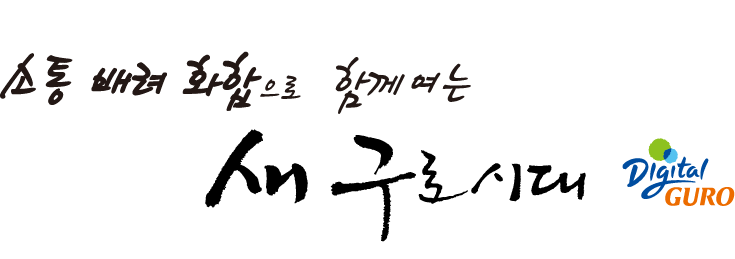 소통 배려 화합으로 함께 여는
새 구로 시대
Digital
GURO